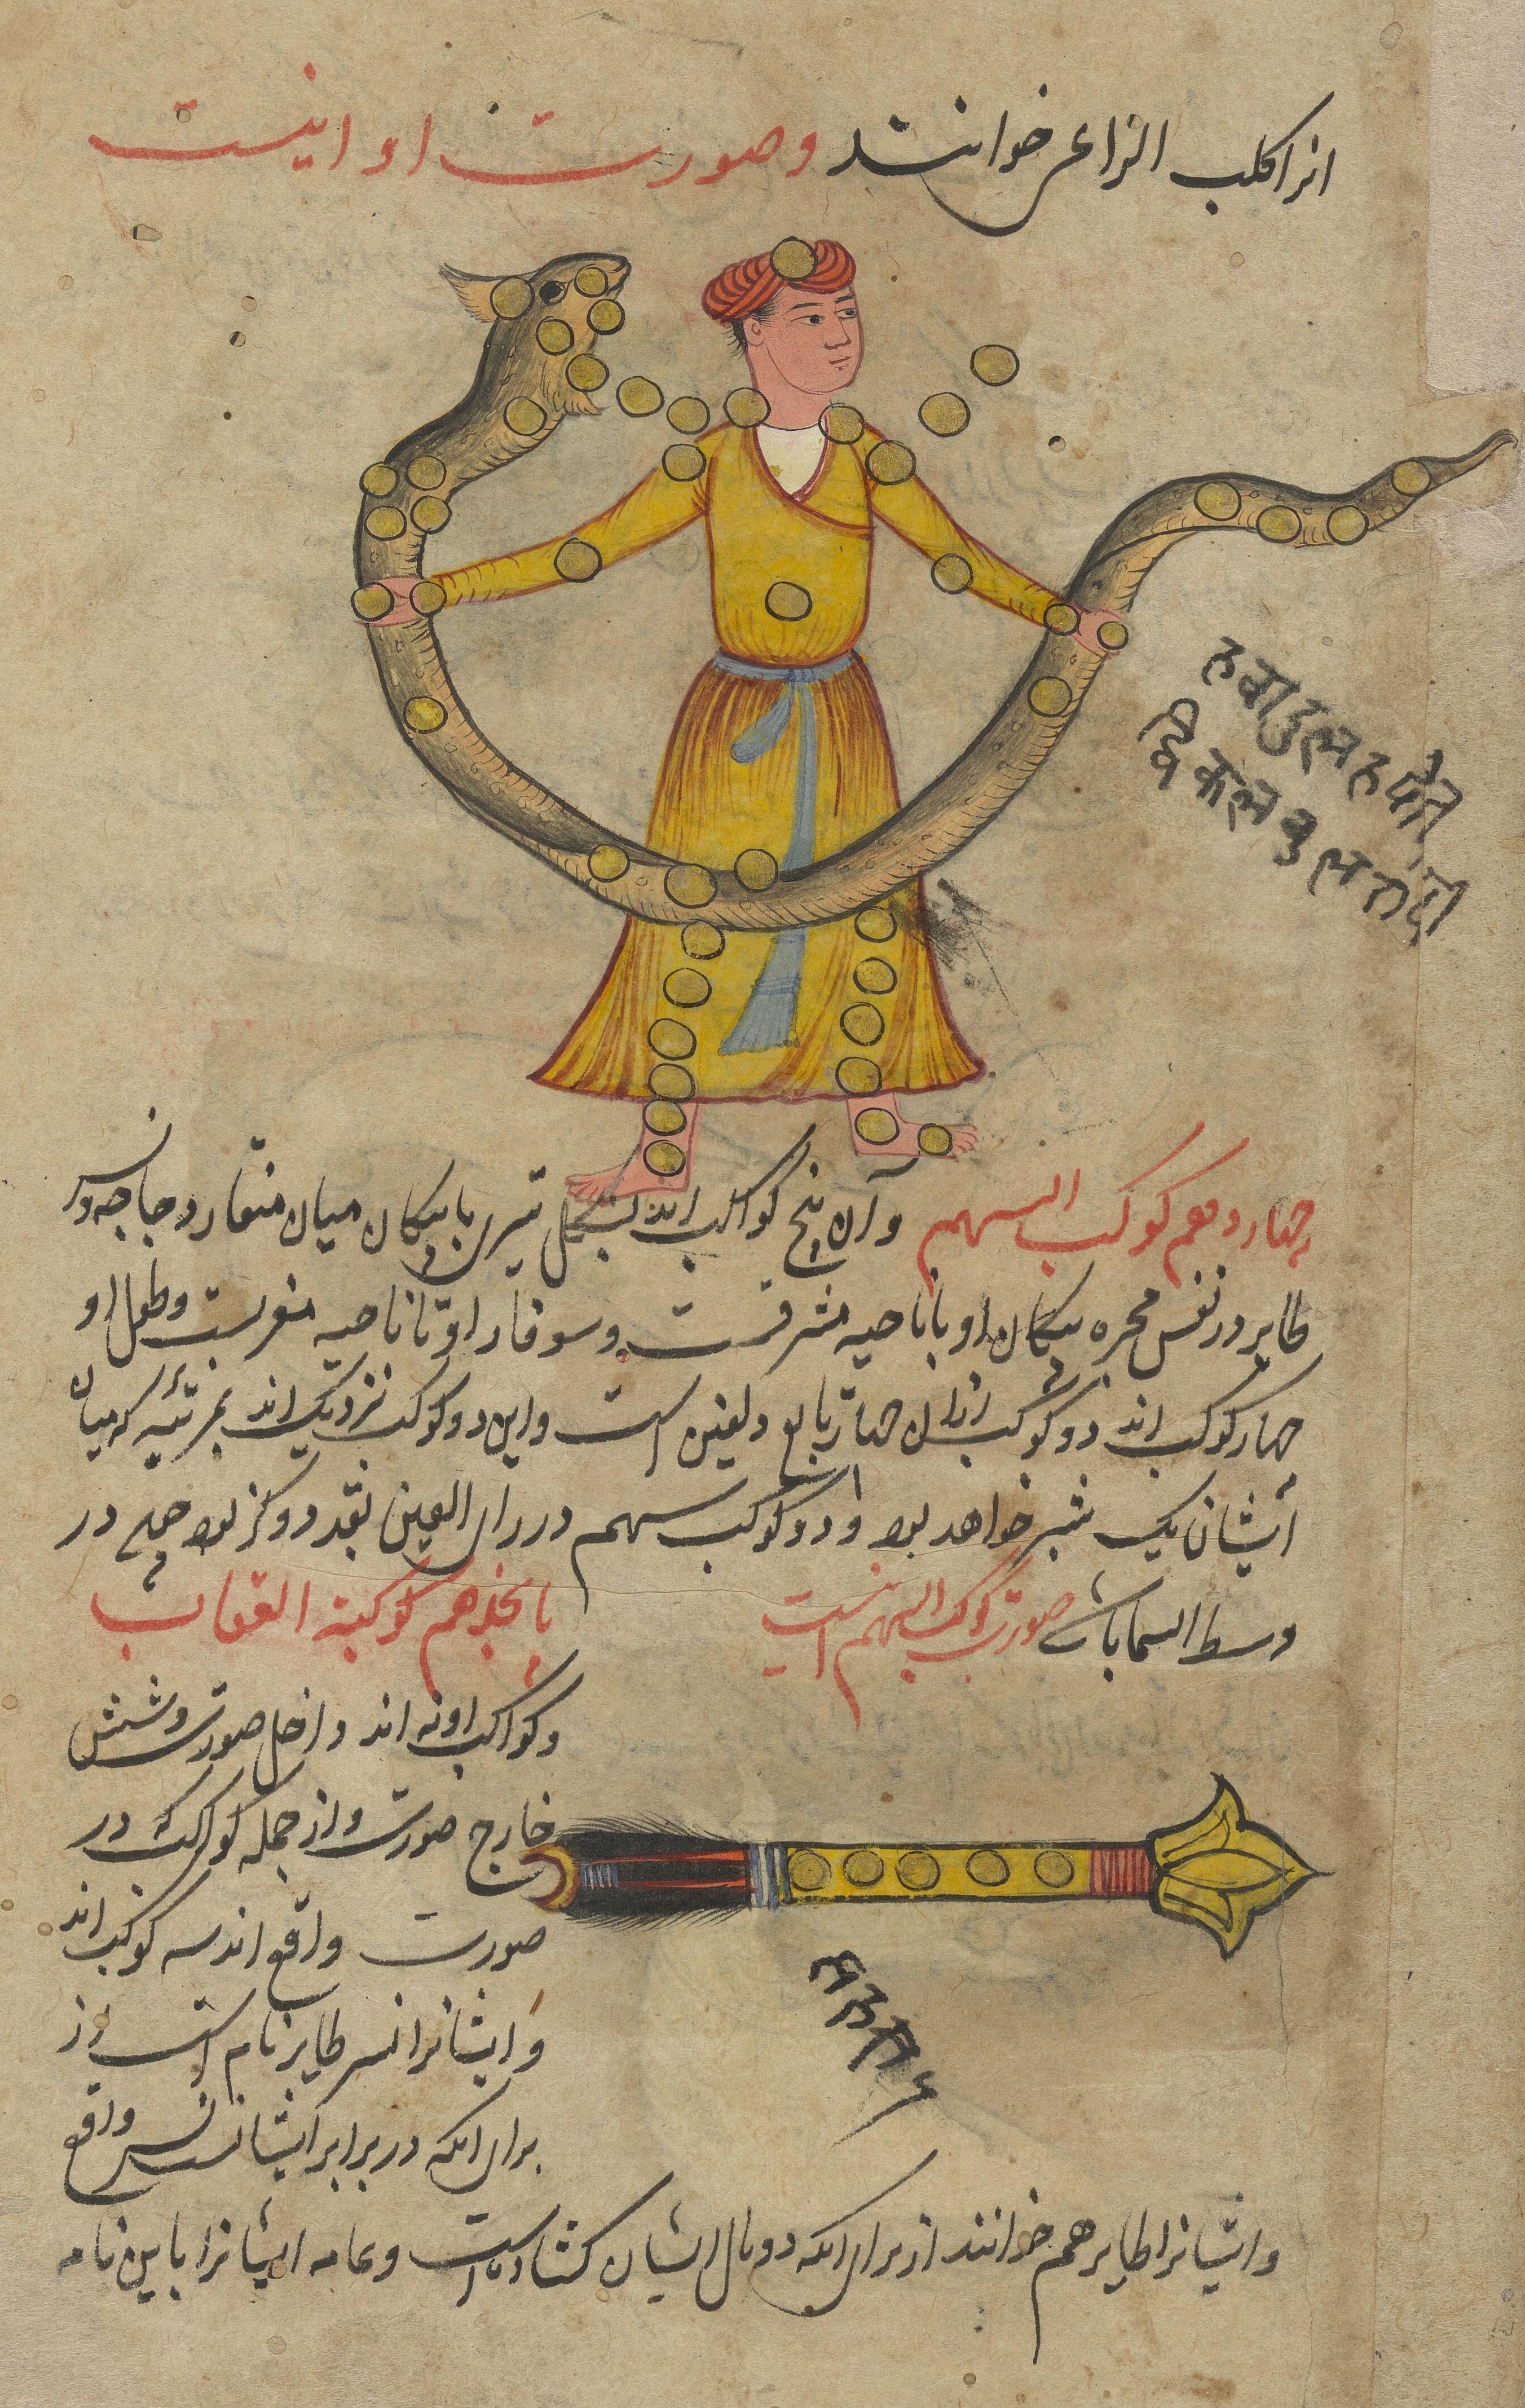 انرا کلب الراعی خوانند و صورت او اینست
چهاردهم کوکب السهم وآن پنج کواکب اند بشکل تیری با پیکان میان منقار دجاجه و نسر
طایر در نفس مجره پیکان او با ناحیه مشرقست و سوفار او تا ناحیه مغربست و طول او
چهار کوکب اند دو کوکب ازان چهار است و این دو کوکب نزدیک اند بمرتبه که میان
ایشان یک شبر خواهد بود و دو کوکب سهم در رای العین بقدر دو کز بود چه در
وسط السما باشد صورت کوکب السهم اینست
پانجدهم کوکبة العقاب
و کواکب او نه اند داخل صورت و شش
خارج صورت و از جمله کواکب که در
صورت واقع اند سه کوکب اند
و ایشانرا نسر طایر نام است از
برای انکه در برابر ایشان نسر واقع
و ایشانرا طایر هم خوانند از برای انکه دو بال ایشان کشاده است و عامه ایشانرا باین نام